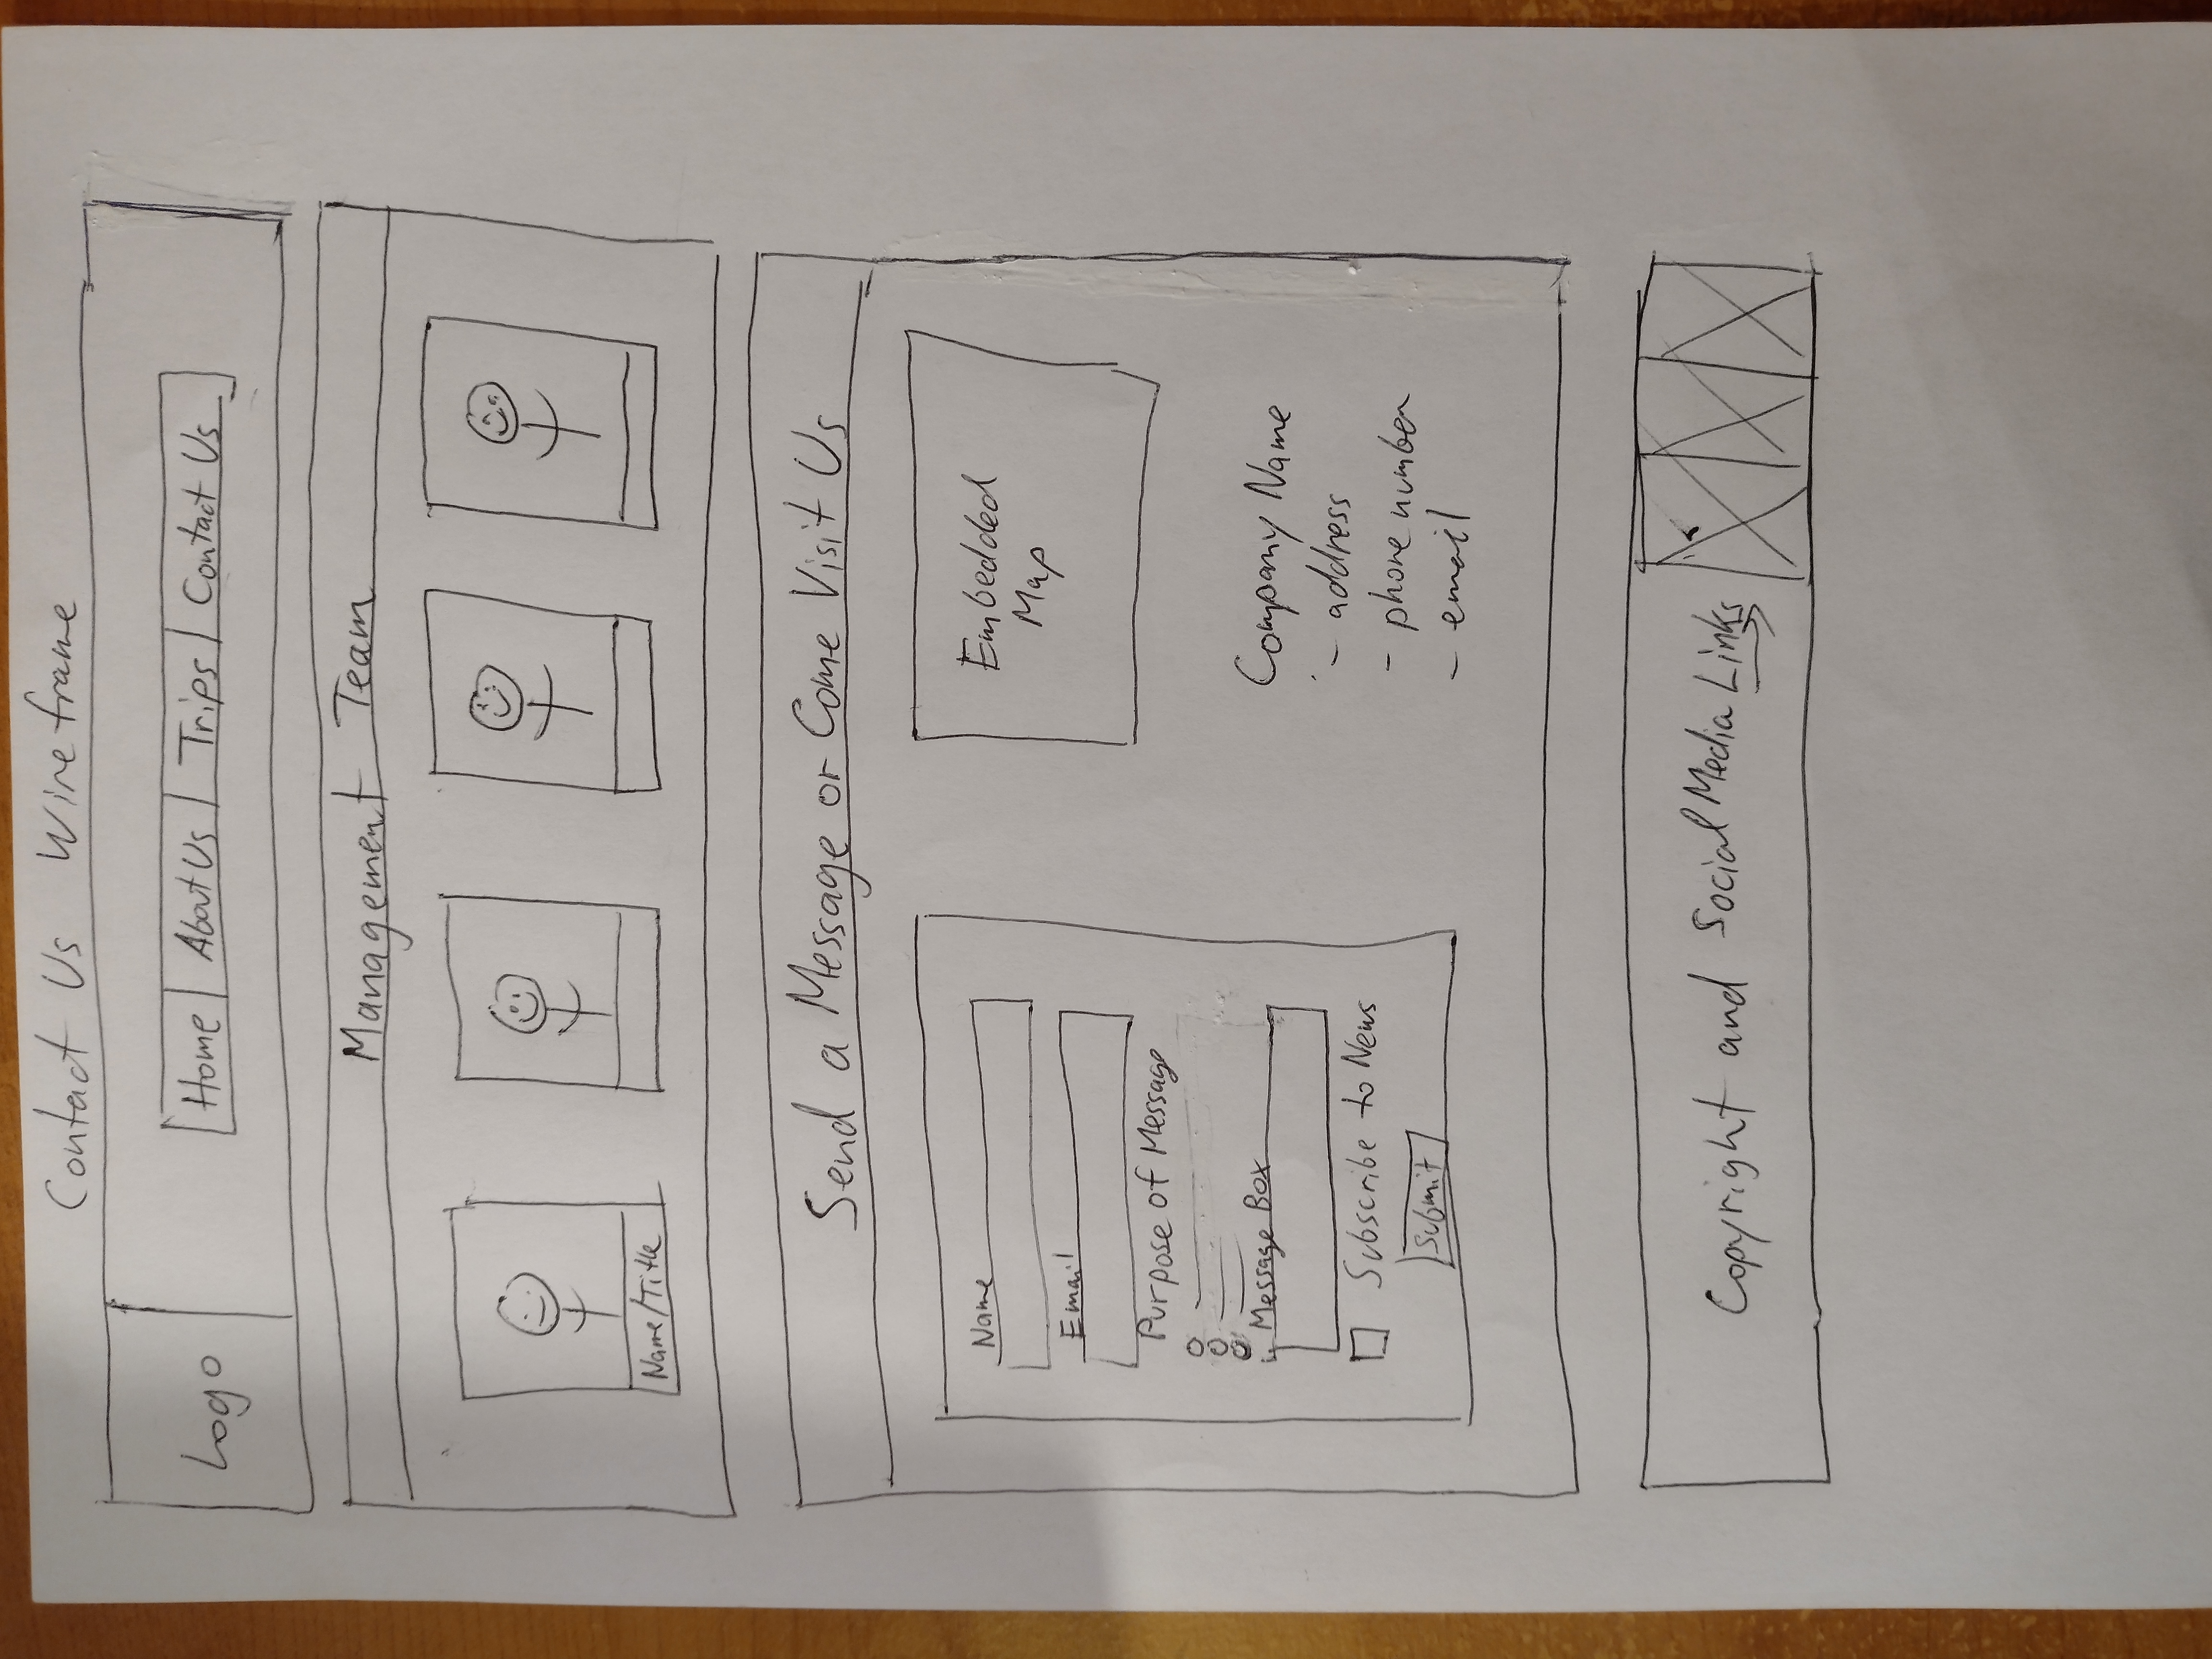 Contact Us Wireframe
Logo
Home About Us Trips Contact Us
Management Team
Name/Title
Send a Message or Come Visit Us
Name
Email
Purpose of Message
Message Box
Subscribe to News
Submit
Embedded
Map
Company Name
- address
- phone number
- email
Copyright and Social Media Links